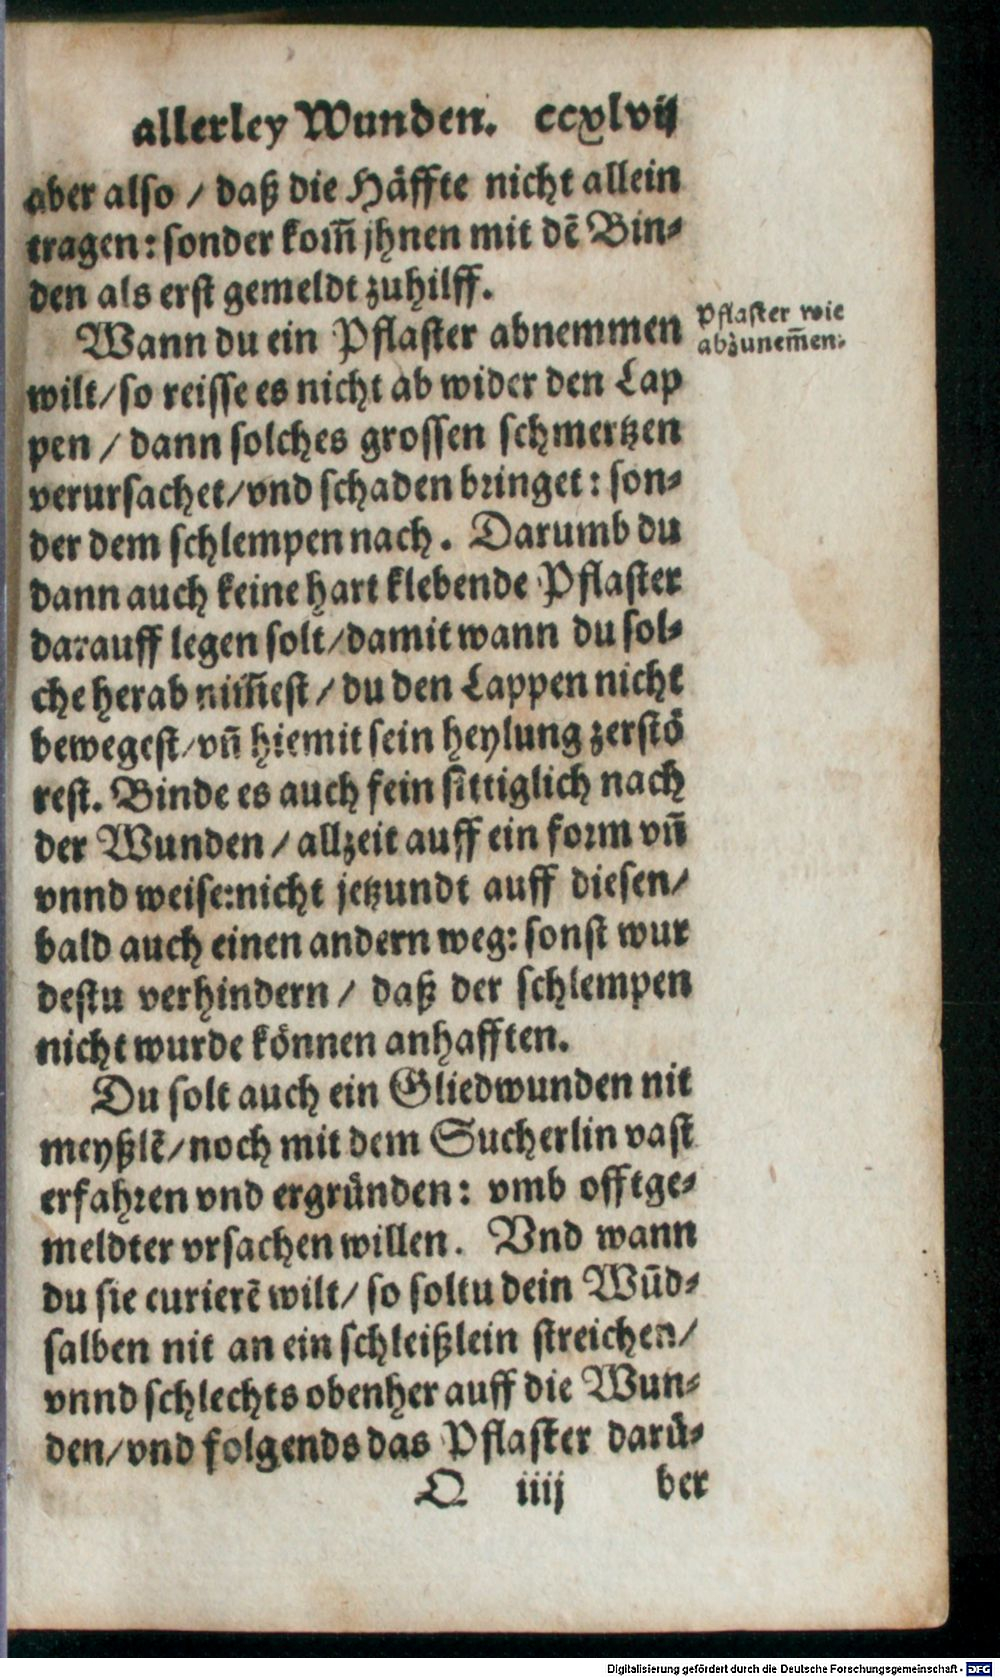 allerley Wunden. ccxlvij
aber also / daß die Häffte nicht allein
tragen: sonder kom̃ jhnen mit dẽ Bin⸗
den als erst gemeldt zuhilff.
Wann du ein Pflaster abnemmen
Pflaster wie
abzunem̃en.
wilt/so reisse es nicht ab wider den Lap
pen / dann solches grossen schmertzen
verursachet/vnd schaden bringet: son⸗
der dem schlempen nach. Darumb du
dann auch keine hart klebende Pflaster
darauff legen solt/damit wann du sol⸗
che herab nim̃est / du den Lappen nicht
bewegest/vñ hiemit sein heylung zerstö
rest. Binde es auch fein sittiglich nach
der Wunden / allzeit auff ein form vñ
vnnd weise:nicht jetzundt auff diesen/
bald auch einen andern weg: sonst wur
destu verhindern / daß der schlempen
nicht wurde können anhafften.
Du solt auch ein Gliedwunden nit
meyßlẽ/noch mit dem Sucherlin vast
erfahren vnd ergründen: vmb offtge⸗
meldter vrsachen willen. Vnd wann
du sie curierẽ wilt/ so soltu dein Wũd⸗
salben nit an ein schleißlein streichen/
vnnd schlechts obenher auff die Wun⸗
den/vnd folgends das Pflaster darü⸗
Q iiij ber
Digitalisierung gefördert durch die Deutsche Forschungsgemeinschaft - DFG